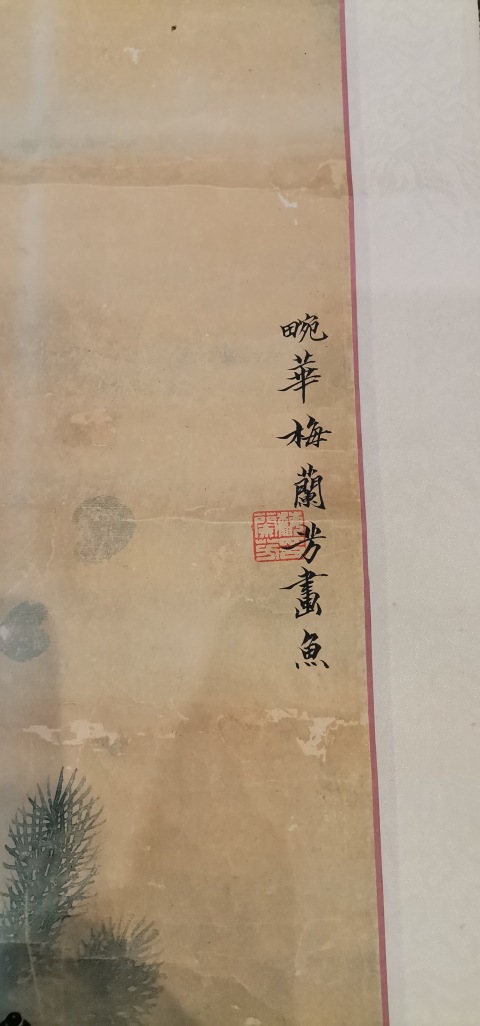 畹華梅蘭芳畫魚